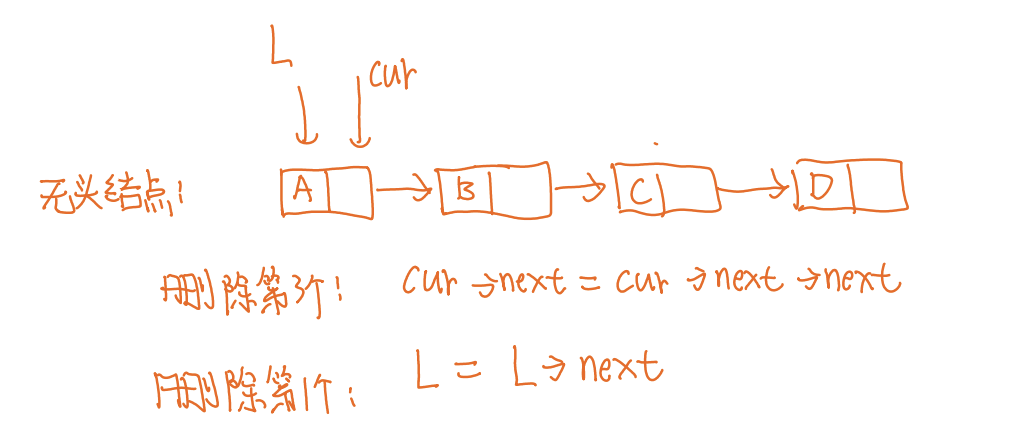 L
cur
无头结点: A B C D
删除第3个: cur→next = cur→next→next
删除第1个: L = L→next